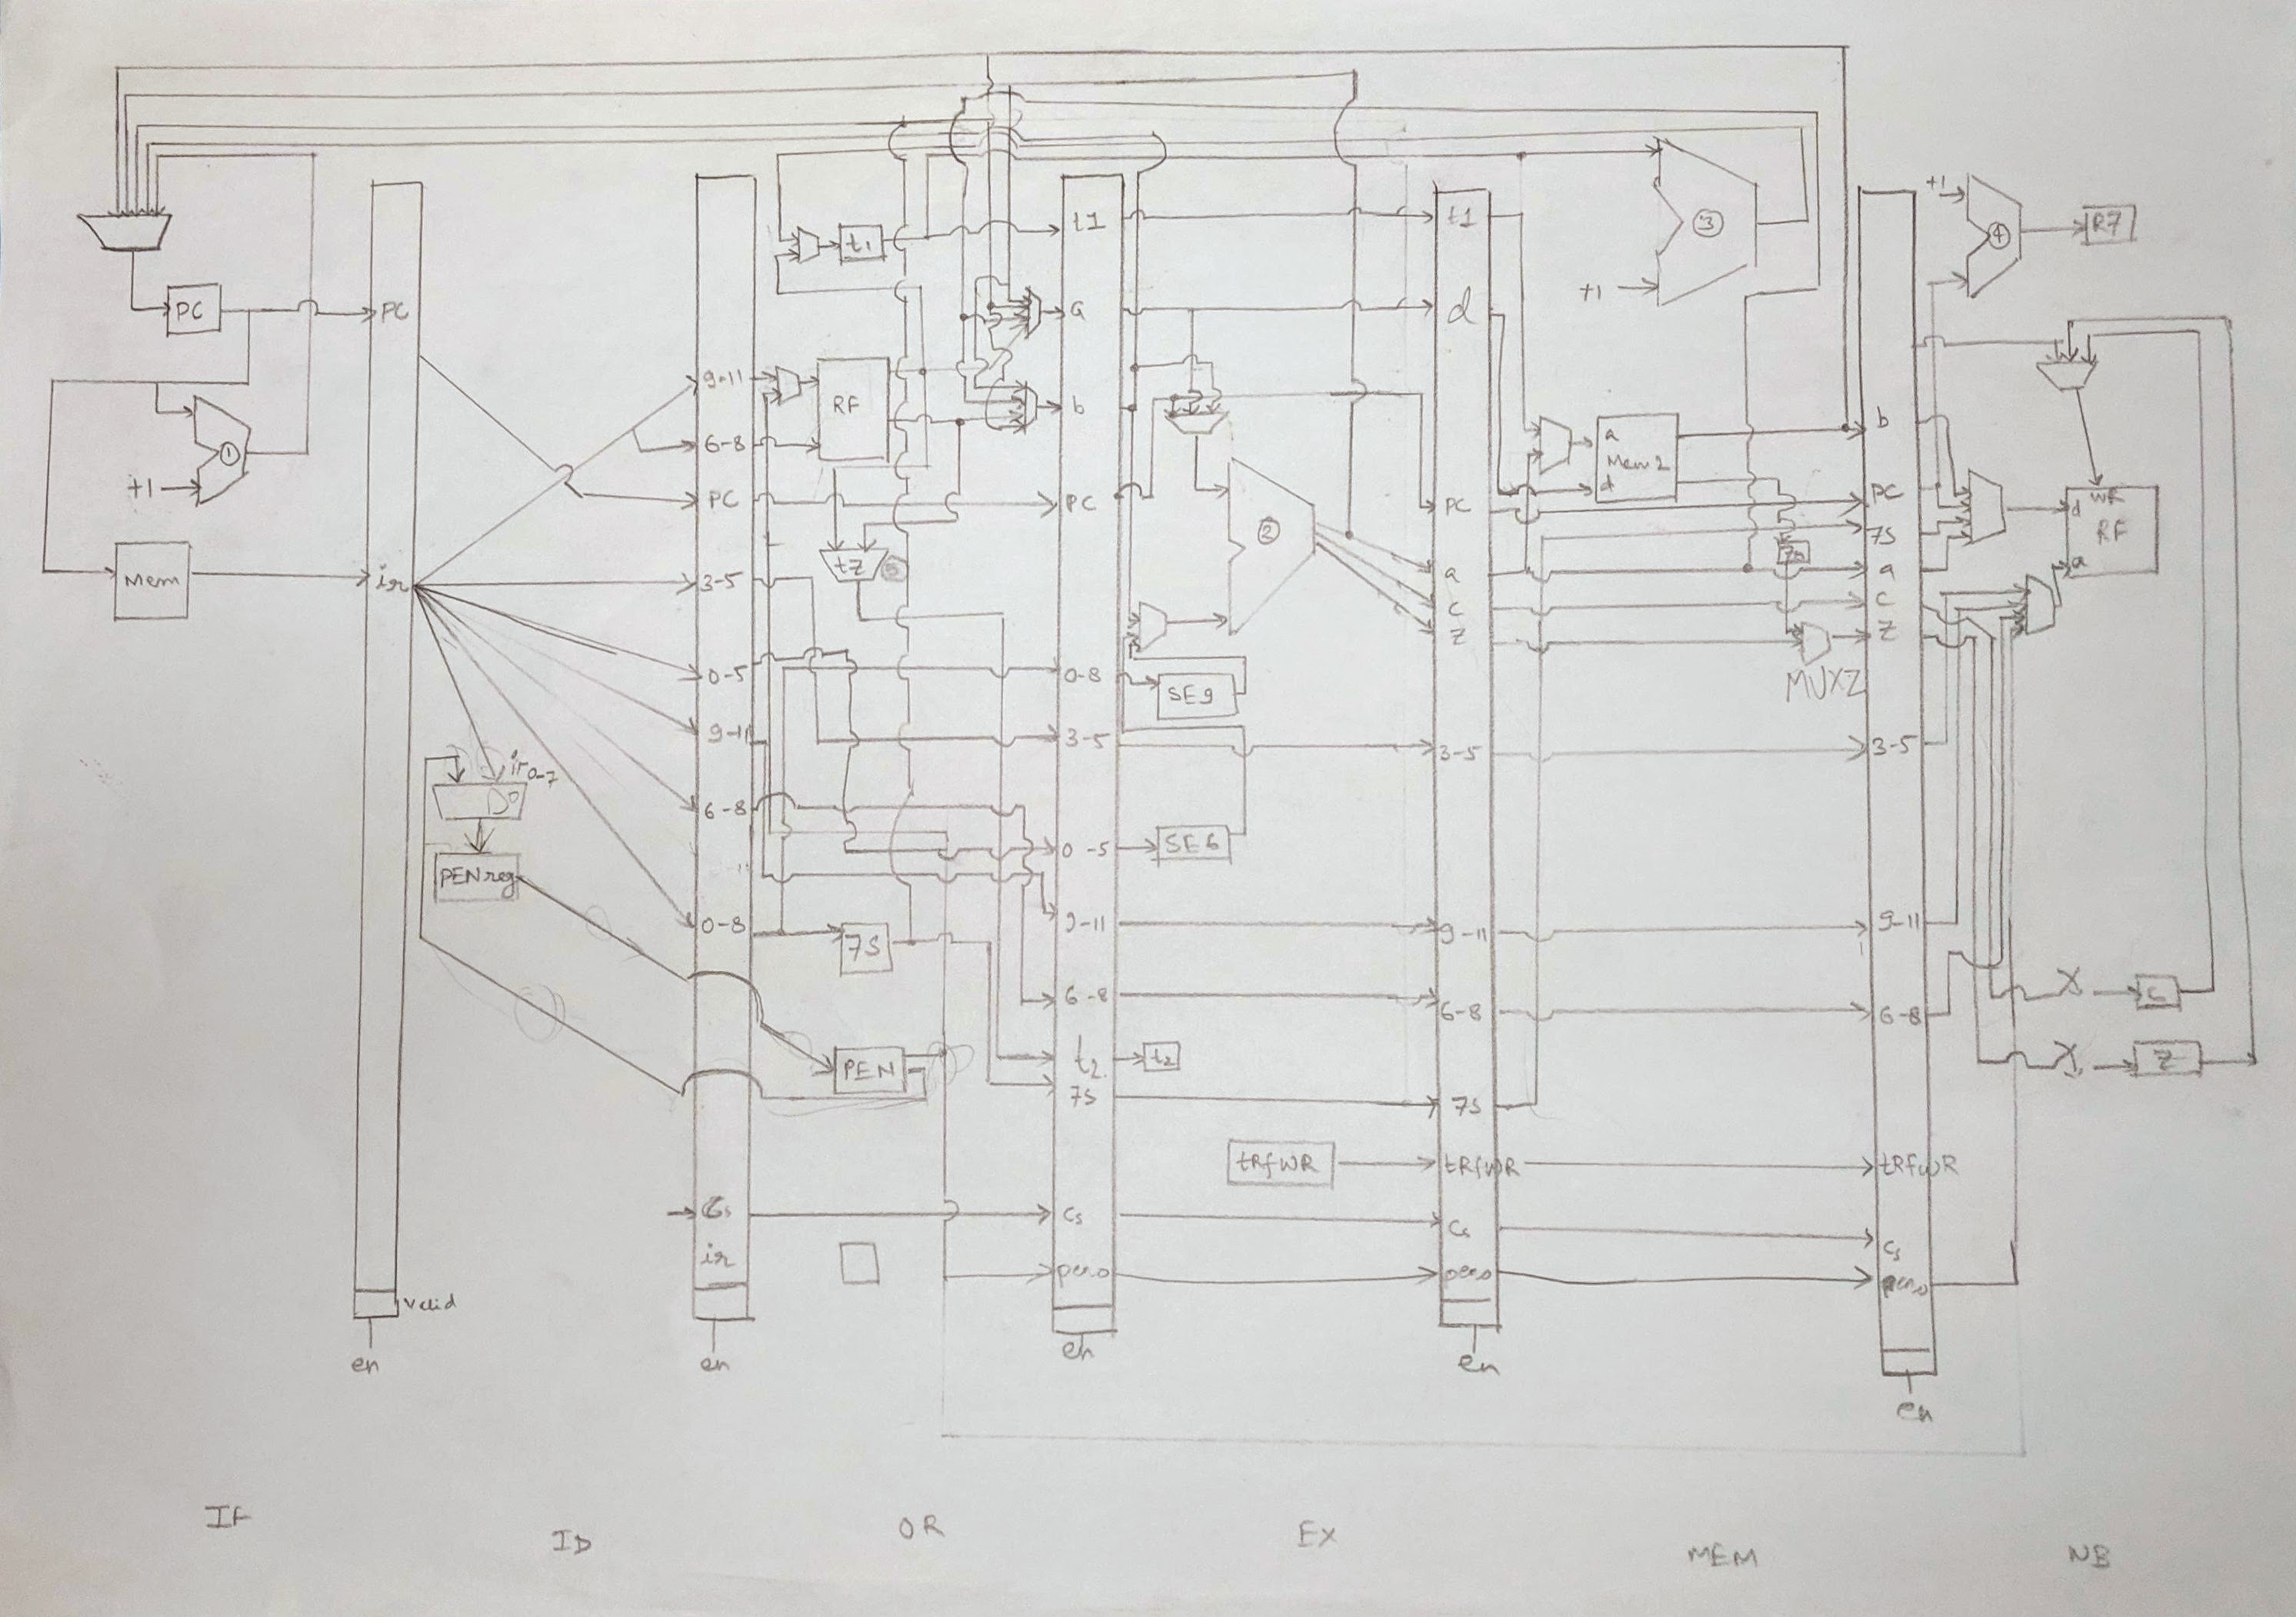 PC
①
+1
Mem
PC
ir
valid
en
ir0-7
PENreg
9-11
6-8
PC
3-5
0-5
9-11
6-8
0-8
Cs
ir
en
t1
RF
tz
7S
PEN
t1
a
b
PC
0-8
3-5
0-5
9-11
6-8
t2
7S
Cs
peno
en
②
SE9
SE6
t2
tRfWR
t1
d
PC
a
c
Z
3-5
9-11
6-8
7S
tRfWR
Cs
peno
en
③
+1
a
Mem2
d
MUXZ
b
PC
7S
a
c
Z
3-5
9-11
6-8
tRfWR
Cs
peno
en
+1
④
R7
WR
d
RF
a
C
Z
IF
ID
OR
EX
MEM
WB